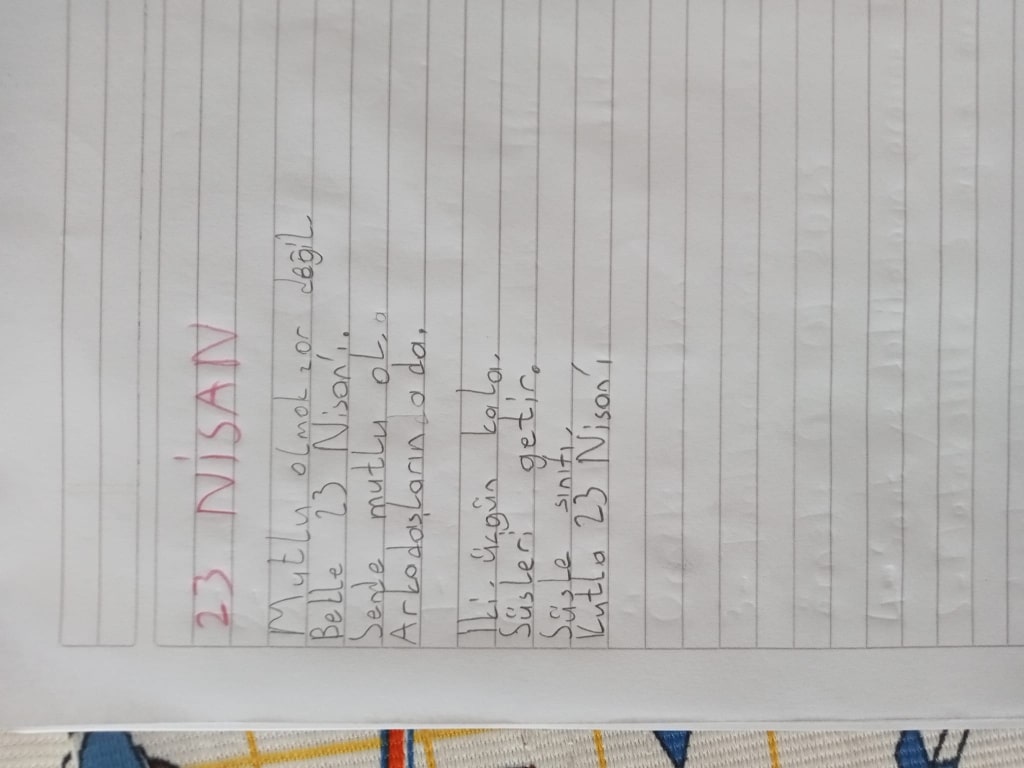 23 NİSAN
Mutlu olmak zor değil
Belle 23 Nisan'ı.
Sende mutlu ol.
Arkadaşlarında da.
İki üçgün kala,
Süsleri getir.
Süsle sınıfı
Kutla 23 Nisan'ı